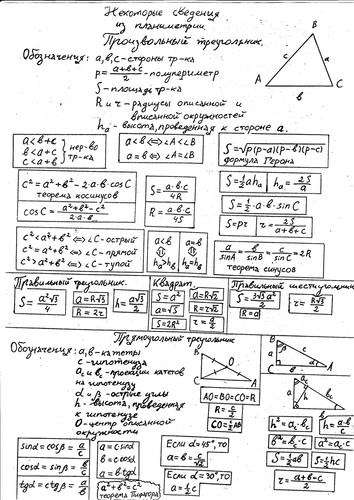 Некоторые сведения
из планиметрии.
Произвольный треугольник.
Обозначения: a, b, c - стороны тр-ка
p = (a+b+c)/2 - полупериметр
S - площадь тр-ка
R и r - радиусы описанной и
вписанной окружностей
hₐ - высота, проведенная к стороне a.
B
c a
A b C
a < b+c
b < a+c
c < a+b
нер-во
тр-ка
a < b ⇔ ∠A < ∠B
a = b ⇔ ∠A = ∠B
S = √p(p-a)(p-b)(p-c)
формула Герона
c² = a² + b² - 2·a·b·cosC
теорема косинусов
cosC = (a²+b²-c²)/(2·a·b)
S = (a·b·c)/(4R)
R = (a·b·c)/(4S)
S = ½ahₐ
hₐ = 2S/a
S = ½·a·b·sinC
S = pr
r = 2S/(a+b+c)
c² < a²+b² ⇔ ∠C - острый
c² = a²+b² ⇔ ∠C - прямой
c² > a²+b² ⇔ ∠C - тупой
a<b a=b
⇕ ⇕
hₐ>h_b hₐ=h_b
a/sinA = b/sinB = c/sinC = 2R
теорема синусов
Правильный треугольник.
S = a²√3/4
a = R√3
R = 2r
h = a√3/2
Квадрат
S = a²
a = R√2
a = √S
R = r√2
S = 2R²
r = a/2
Правильный шестиугольник
S = 3√3a²/2
R = a
r = R√3/2
Прямоугольный треугольник
Обозначения: a, b - катеты
c - гипотенуза
a_c и b_c - проекции катетов
на гипотенузу
α и β - острые углы
h - высота, проведенная
к гипотенузе
O - центр описанной
окружности
B
O
C A
AO=BO=CO=R
R = c/2
CO = ½AB
B
β
a c
C b α A
h² = a_c·b_c
h = ab/c
b² = b_c·c
a² = a_c·c
S = ½ab
S = ½hc
r = (a+b-c)/2
sinα = cosβ = a/c
cosα = sinβ = b/c
tgα = ctgβ = a/b
a = c·sinα
b = c·cosα
a = b·tgα
a²+b² = c²
теорема Пифагора
Если α=45°, то
a = b = c/√2
Если α=30°, то
a = ½c